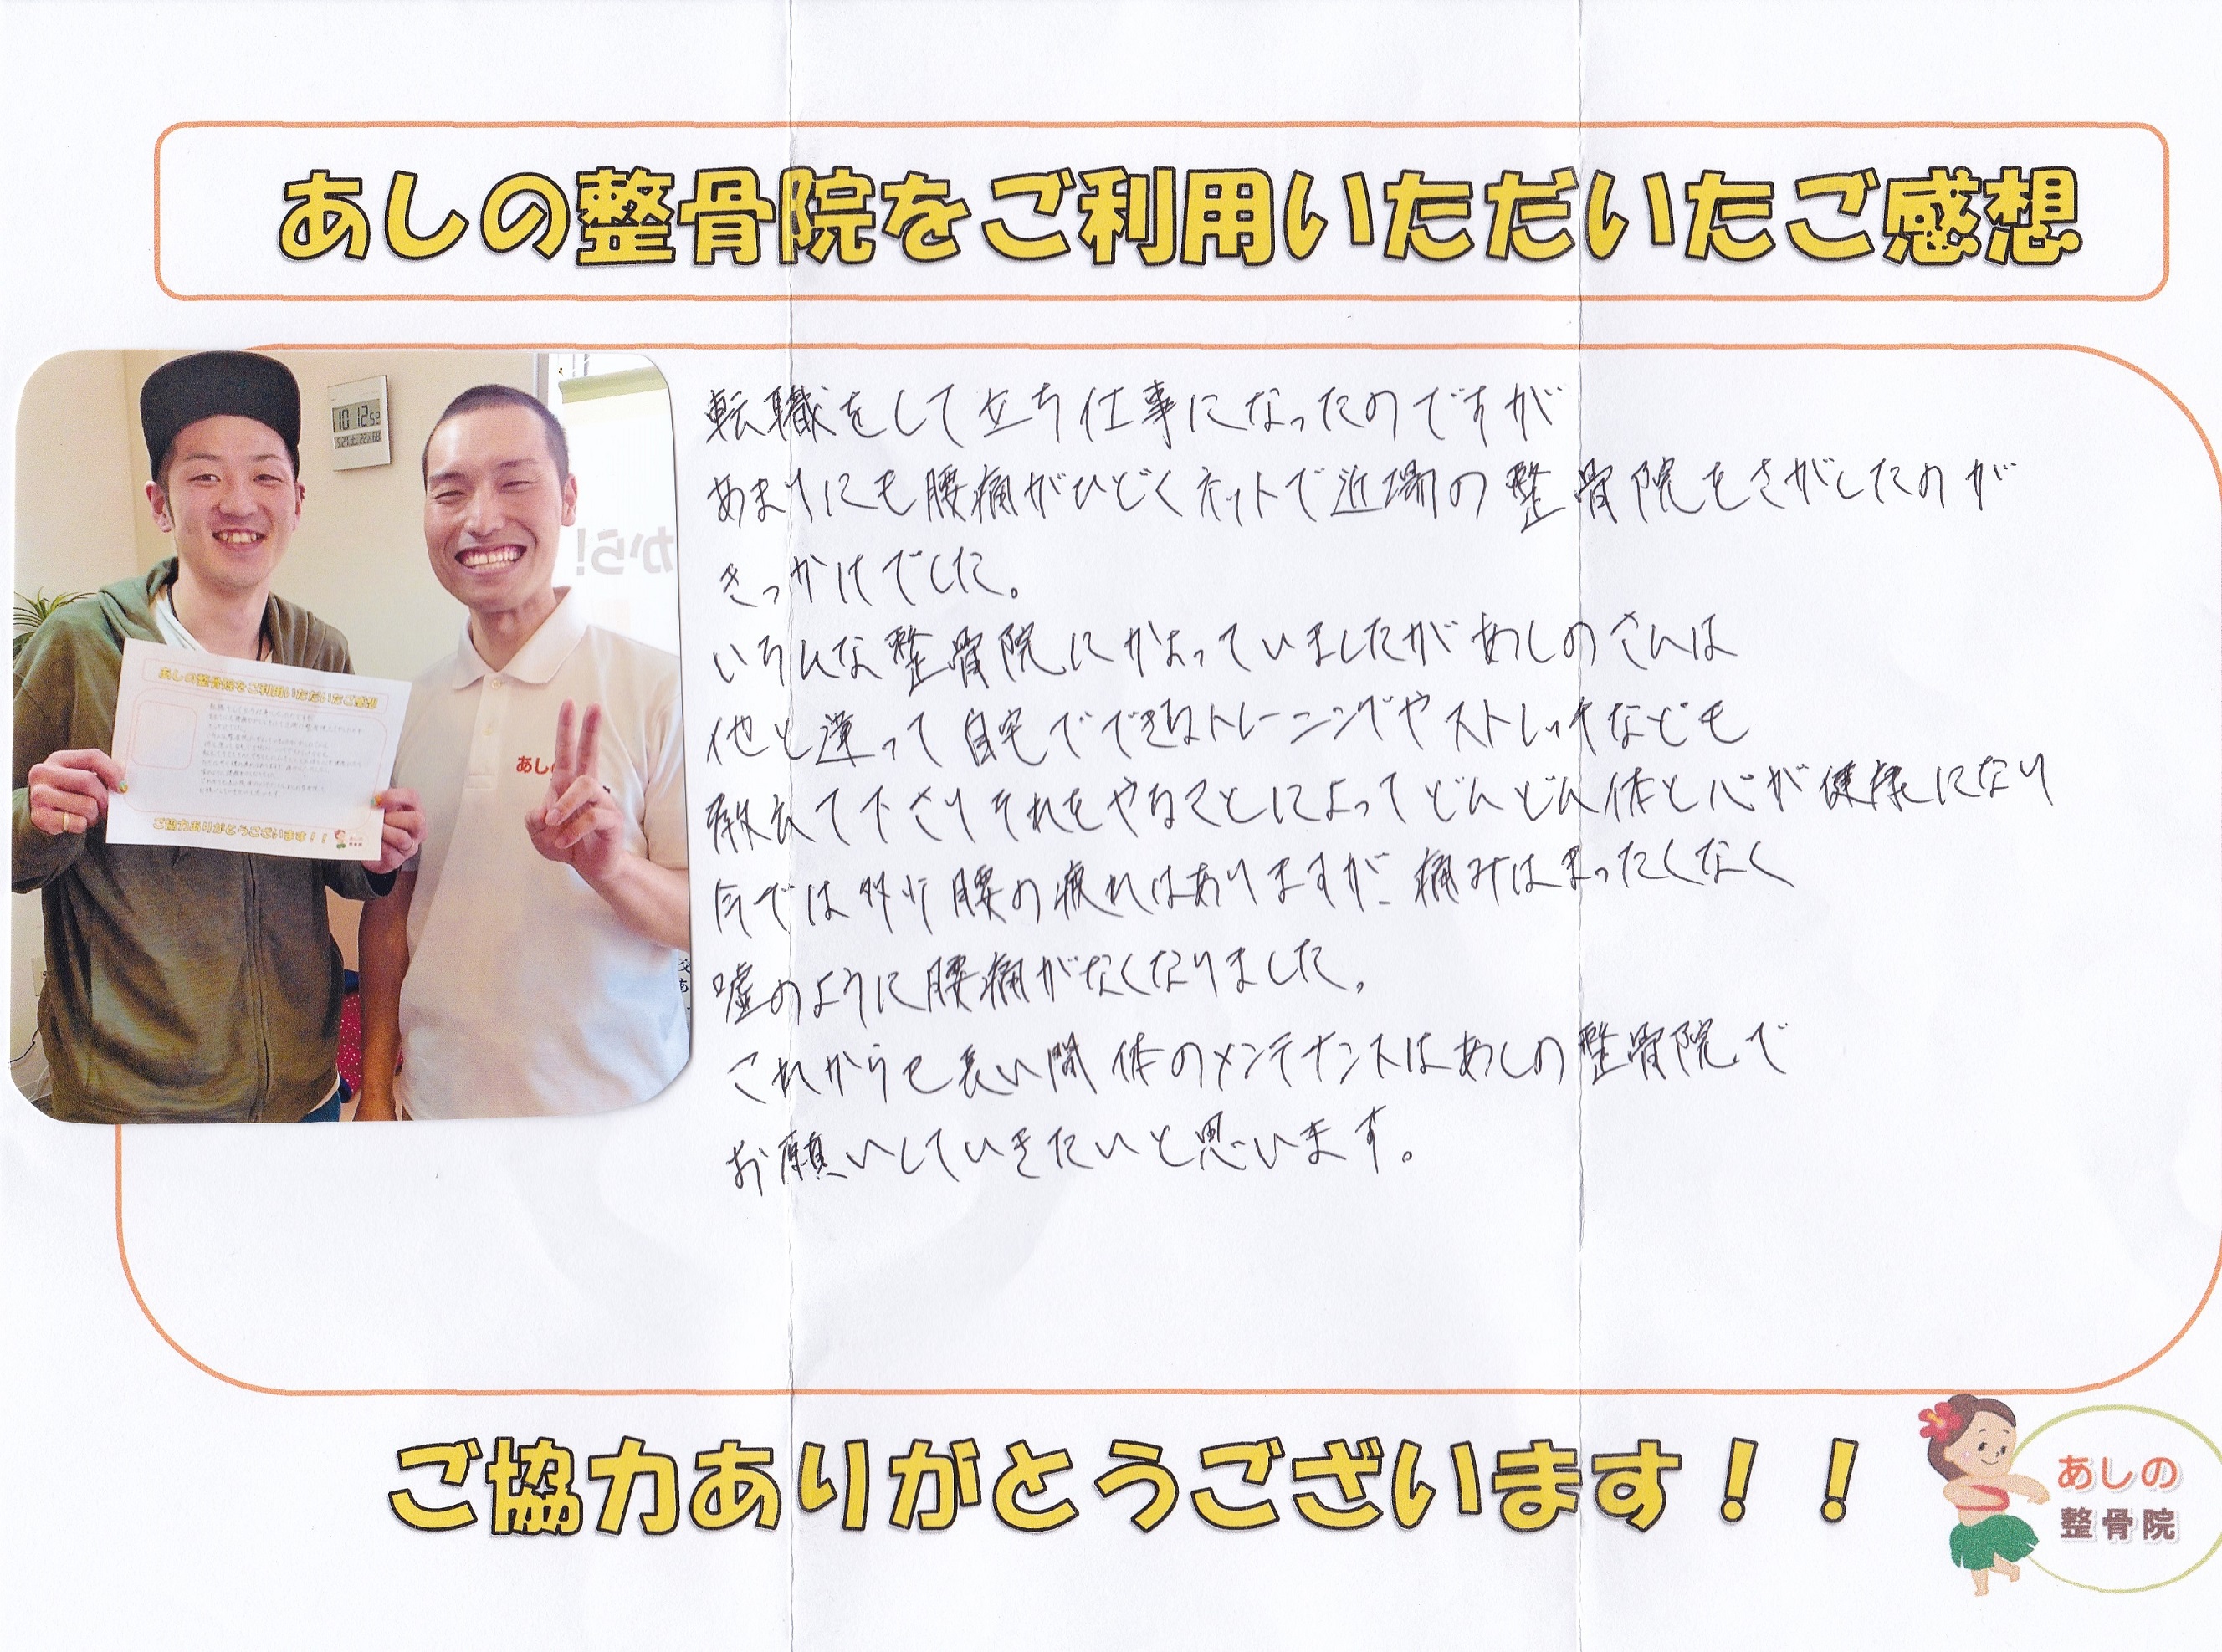 あしの整骨院をご利用いただいたご感想
10:12 52
から!
あし
転職をして立ち仕事になったのですが
あまりにも腰痛がひどくネットで近場の整骨院をさがしたのが
きっかけでした。
いろんな整骨院にかよっていましたがあしのさんは
他と違って自宅でできるトレーニングやストレッチなども
教えて下さりそれをやることによってどんどん体と心が健康になり
今では多少腰の疲れはありますが、痛みはまったくなく
嘘のように腰痛がなくなりました。
これからも長い間体のメンテナンスはあしの整骨院で
お願いしていきたいと思います。
ご協力ありがとうございます！！
あしの
整骨院